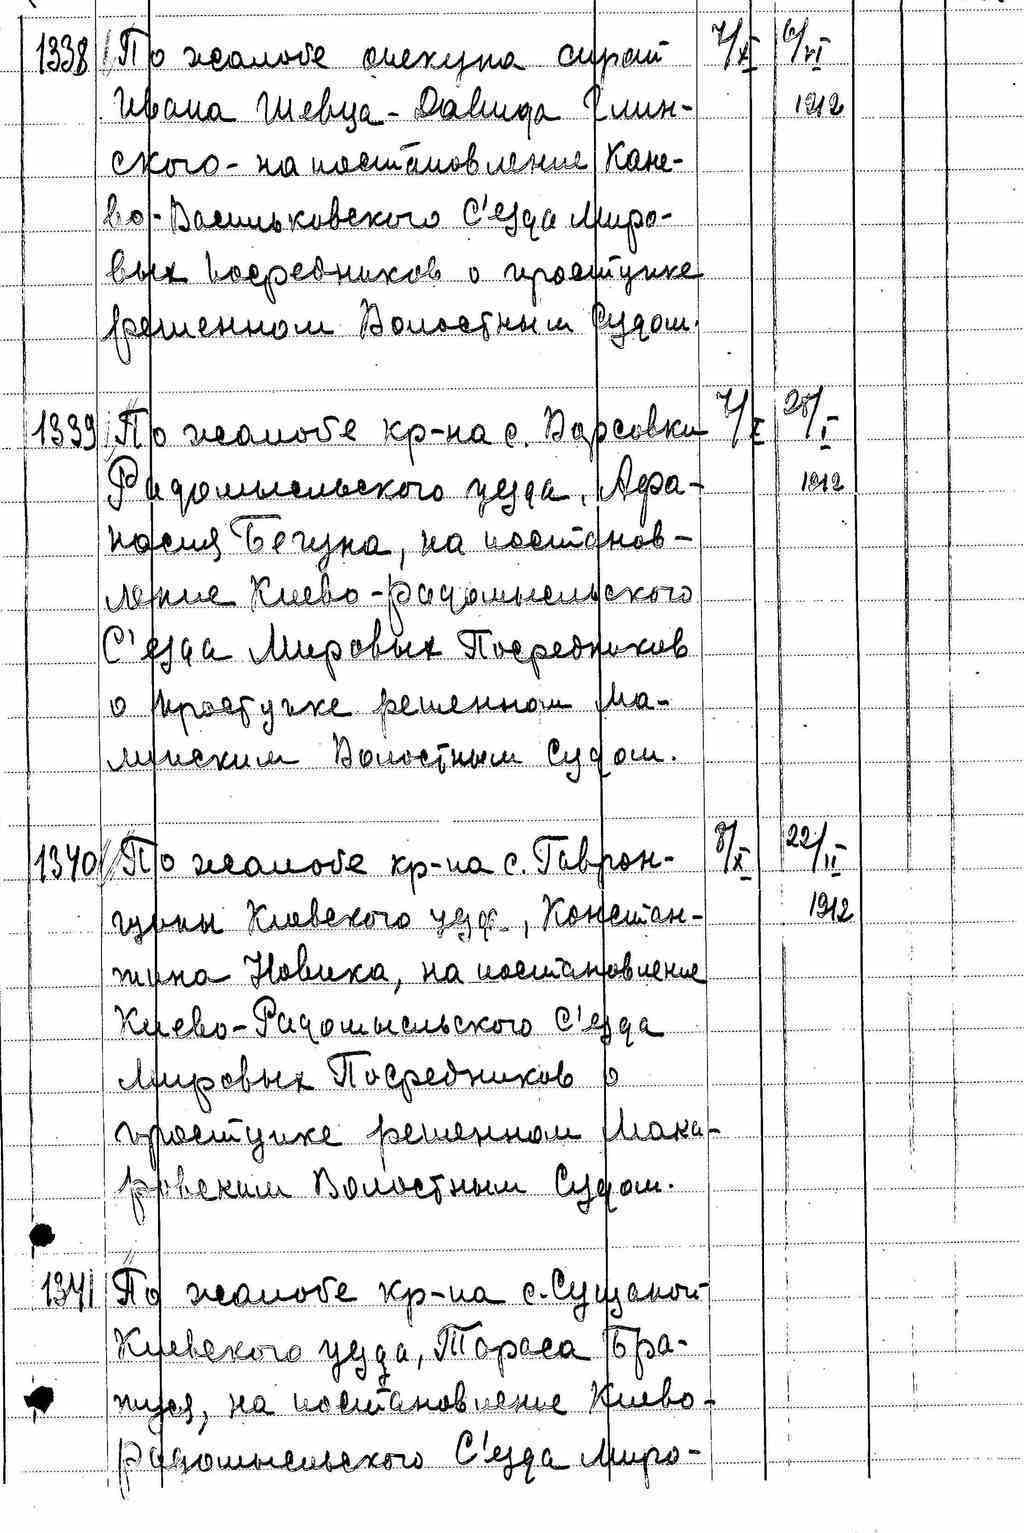 1338 По жалобе опекуна сирот 7/XI 6/VI
Ивана Шевца - Давида Глин- 1912
ского - на постановление Кане-
во-Васильковского С'езда Миро-
вых Посредников о проступке
решенном Волостным Судом.
1339 По жалобе кр-на с. Варовки 7/X 25/I
Радомысльского уезда, Афа- 1912
насия Бегуна, на постанов-
ление Киево-Радомысльского
С'езда Мировых Посредников
о проступке решенном Ма-
линским Волостным Судом.
1340 По жалобе кр-на с. Гаврон-
щины Киевского уезд., Констан- 8/X 22/II
тина Новика, на постановление 1912
Киево-Радомысльского С'езда
Мировых Посредников о
проступке решенном Мака-
ровским Волостным Судом.
1341 По жалобе кр-на с.
Киевского уезда, Тараса
на постановление Киево-
Радомысльского С'езда Миро-